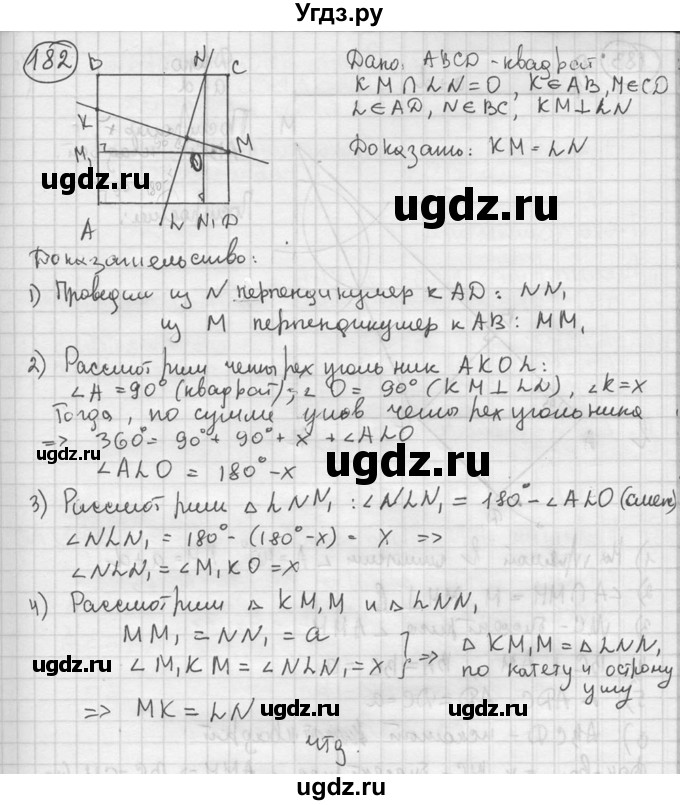 Угдз.ру
182
B N C
K
M₁ O M
A L N₁ D
Дано: ABCD - квадрат
KM ∩ LN = O, K∈AB, M∈CD
L∈AD, N∈BC, KM⊥LN
Доказать: KM = LN
Доказательство:
1) Проведем из N перпендикуляр к AD: NN₁
из M перпендикуляр к AB: MM₁
2) Рассмотрим четырехугольник AKOL:
∠A = 90° (квадрат); ∠O = 90° (KM⊥LN), ∠k = x
Тогда, по сумме углов четырехугольника
=> 360° = 90° + 90° + x + ∠ALO
∠ALO = 180° - x
3) Рассмотрим △LNN₁: ∠NLN₁ = 180° - ∠ALO (смеж)
∠NLN₁ = 180° - (180° - x) = x =>
∠NLN₁ = ∠M₁KO = x
4) Рассмотрим △KM₁M и △LNN₁
MM₁ = NN₁ = a
∠M₁KM = ∠NLN₁ = x ] => △KM₁M = △LNN₁
по катету и острому
углу
=> MK = LN
чтд.
ugdz.ru
ugdz.ru
ugdz.ru
ugdz.ru
ugdz.ru
ugdz.ru
ugdz.ru
ugdz.ru
ugdz.ru
ugdz.ru
ugdz.ru